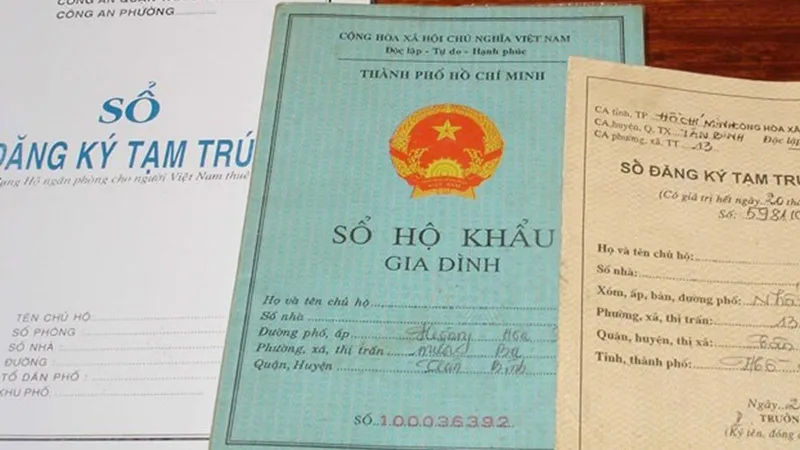 CÔNG AN PHƯỜNG:
SỔ
ĐĂNG KÝ TẠM TRÚ
Hộ ngăn phòng cho người Việt Nam thuê
TÊN CHỦ HỘ :
SỐ PHÒNG :
SỐ NHÀ :
ĐƯỜNG :
TỔ DÂN PHỐ :
KHU PHỐ :
CỘNG HÒA XÃ HỘI CHỦ NGHĨA VIỆT NAM
Độc lập - Tự do - Hạnh phúc
THÀNH PHỐ HỒ CHÍ MINH
VIỆT NAM
SỔ HỘ KHẨU
GIA ĐÌNH
Họ và tên chủ hộ
Số nhà
Đường phố, ấp
Phường, xã, thị trấn
Quận, Huyện Tân Bình
SỐ 100036392
CA tỉnh, TP HỒ CHÍ MINH CỘNG HÒA XÃ
CA huyện, Q, TX TÂN BÌNH Độc lập
CA phường, xã, TT 13
SỔ ĐĂNG KÝ TẠM TRÚ
(Có giá trị hết ngày 20 thá
Số: 59810
Họ và tên chủ hộ:
Số nhà:
Xóm, ấp, bản, đường phố:
Phường, xã, thị trấn: 13
Quận, huyện, thị xã:
Tỉnh, thành phố:
Ngày 2
TRƯỞ
(Ký tên, đóng